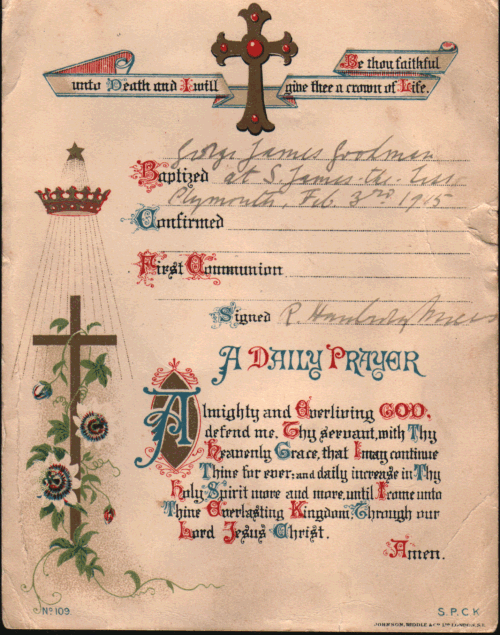 Be thou faithful
unto Death and I will give thee a crown of Life.
George James
Baptized at S. James-the-Less
Plymouth, Feb. 3rd 1915
Confirmed
First Communion
Signed R.
A DAILY PRAYER
Almighty and Everliving GOD,
defend me, Thy servant, with Thy
Heavenly Grace, that I may continue
Thine for ever; and daily increase in Thy
Holy Spirit more and more, until I come unto
Thine Everlasting Kingdom: Through our
Lord Jesus Christ.
Amen.
No 109.
S.P.C.K.